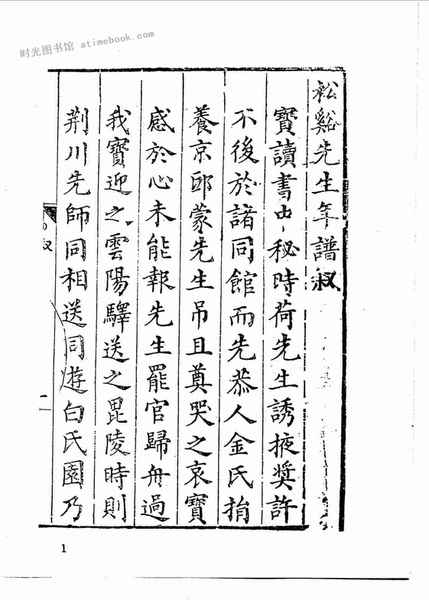 时光图书馆 atimebook.com
松谿先生年譜叙
寳讀書中秘時荷先生誘掖奬許
不後於諸同館而先恭人金氏捐
養京邸蒙先生吊且奠哭之哀寳
感於心未能報先生罷官歸舟過
我寳迎之雲陽驛送之毘陵時則
荆川先師同相送同遊白氏園乃
叙
一
1